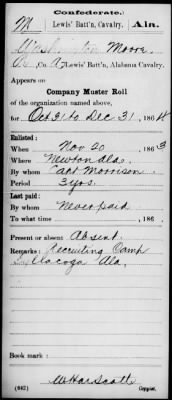 Confederate.
M Lewis' Batt'n, Cavalry. Ala.
Moore
Co. A, Lewis' Battalion, Alabama Cavalry.
Appears on
Company Muster Roll
of the organization named above,
for Oct 31 to Dec 31, 1864.
Enlisted:
When Nov 20, 1863
Where Newton Ala.
By whom Capt Morrison
Period 3 yrs.
Last paid:
By whom Never paid
To what time , 186 .
Present or absent Absent
Remarks: Recruiting Camp
Ala.
Book mark:
(642) Copyist.